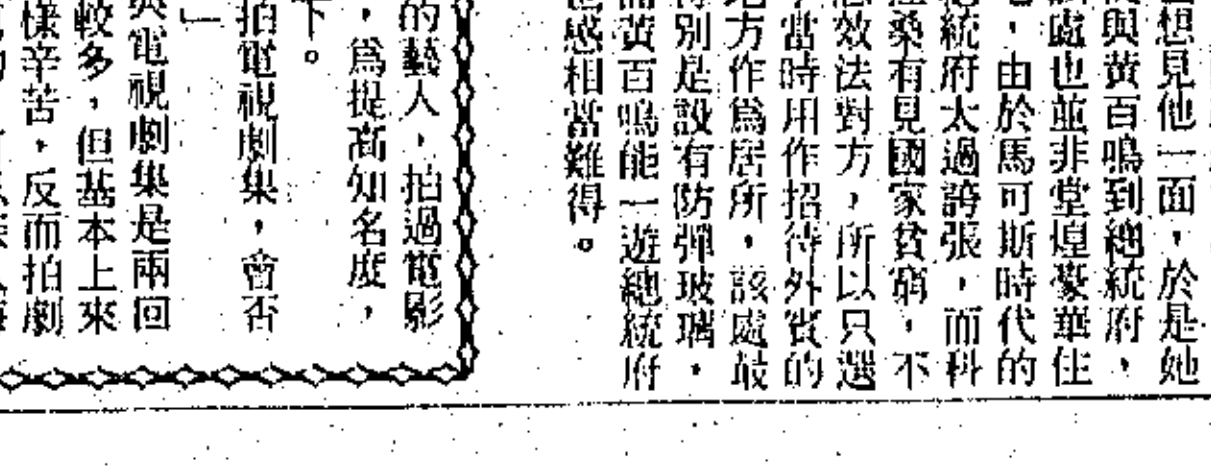 想見他一面，於是她
與黃百鳴到總統府，
處也並非堂煌豪華住
，由於馬可斯時代的
統府太過誇張，而科
桑有見國家貧窮，不
效法對方，所以只選
當時用作招待外賓的
方作爲居所，該處最
別是設有防彈玻璃，
黃百鳴能一遊總統府
感相當難得。
的藝人，拍過電影
，爲提高知名度，
下。
拍電視劇集，會否
」
與電視劇集是兩回
較多，但基本上來
樣辛苦，反而拍劇